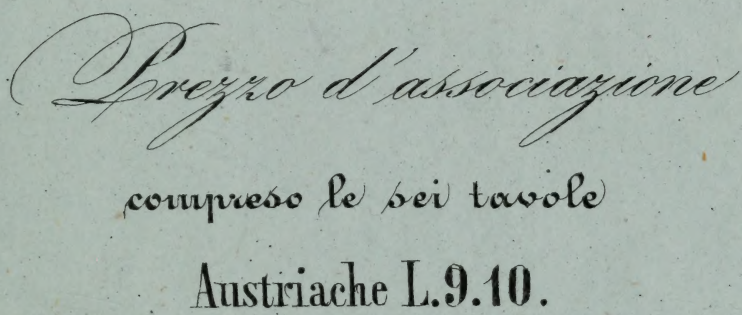 Prezzo d'associazione
compreso le sei tavole
Austriache L.9.10.